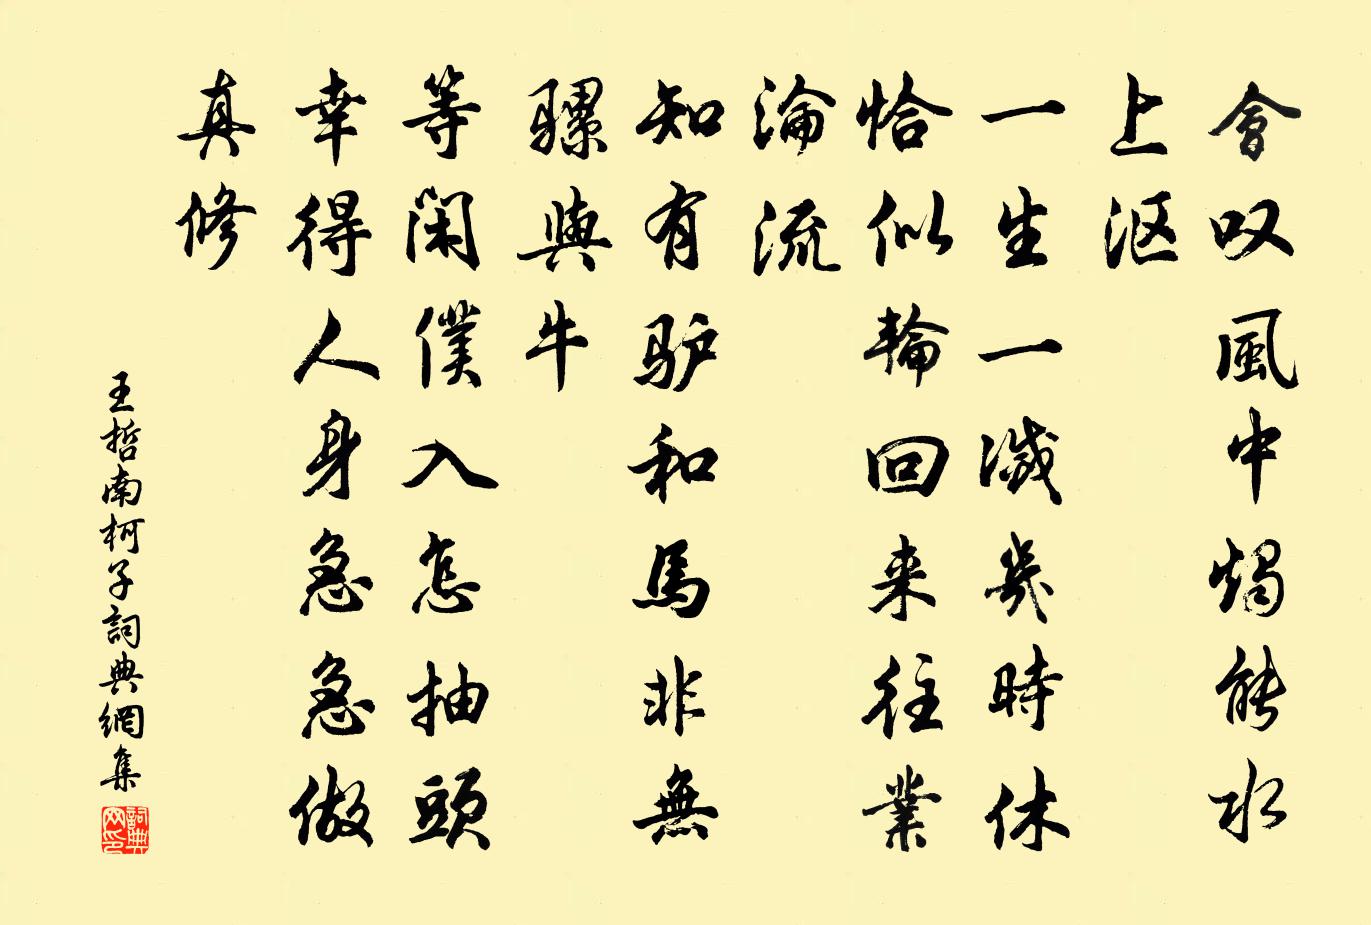 會叹風中燭能水
上沤
一生一滅幾時休
恰似輪回来往業
淪流
知有驴和馬非無
騾與牛
等闲僕入怎抽頭
幸得人身急急做
真修
王哲南柯子詞典網集
詞典
网印